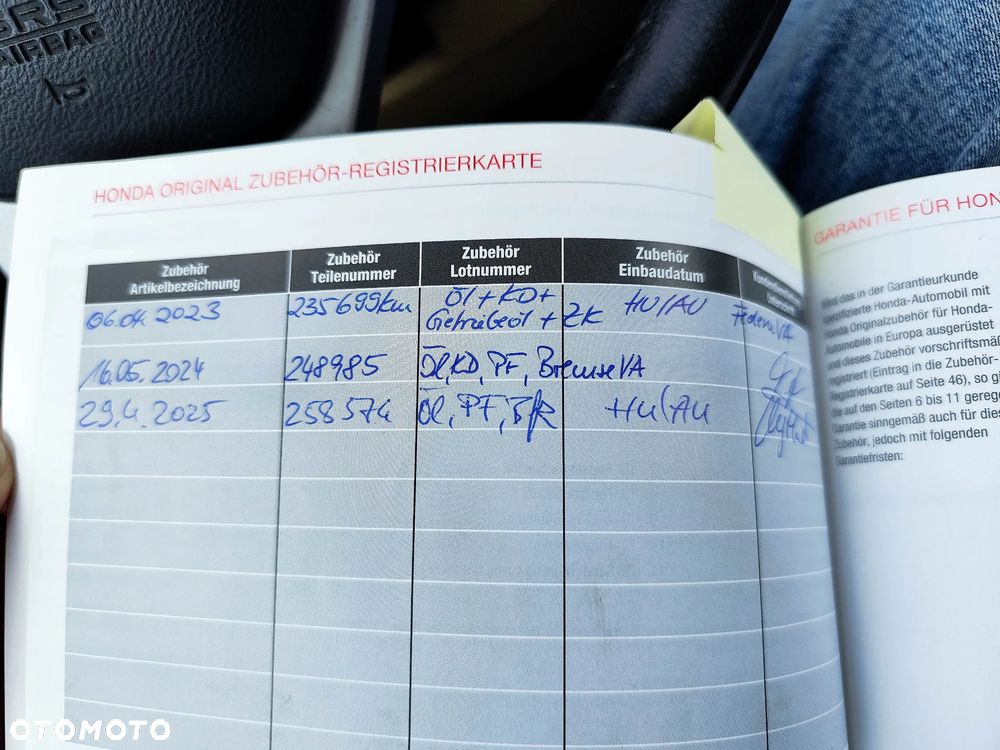 SRS
AIRBAG
HONDA ORIGINAL ZUBEHÖR-REGISTRIERKARTE
Zubehör Artikelbezeichnung
Zubehör Teilenummer
Zubehör Lotnummer
Zubehör Einbaudatum
06.04.2023 235699km Öl+KD+ Getriebeöl+ZK HU/AU Federn VA
16.05.2024 248985 Öl,KD,PF,Bremse VA
29.4.2025 258574 Öl,PF, HU/AU
GARANTIE FÜR HON
Wird das in der Garantieurkunde
spezifizierte Honda-Automobil mit
Honda Originalzubehör für Honda-
Automobile in Europa ausgerüstet
und dieses Zubehör vorschriftsmäß
registriert (Eintrag in die Zubehör-
Registrierkarte auf Seite 46), so gi
die auf den Seiten 6 bis 11 gerege
Garantie sinngemäß auch für dies
Zubehör, jedoch mit folgenden
Garantiefristen:
OTOMOTO